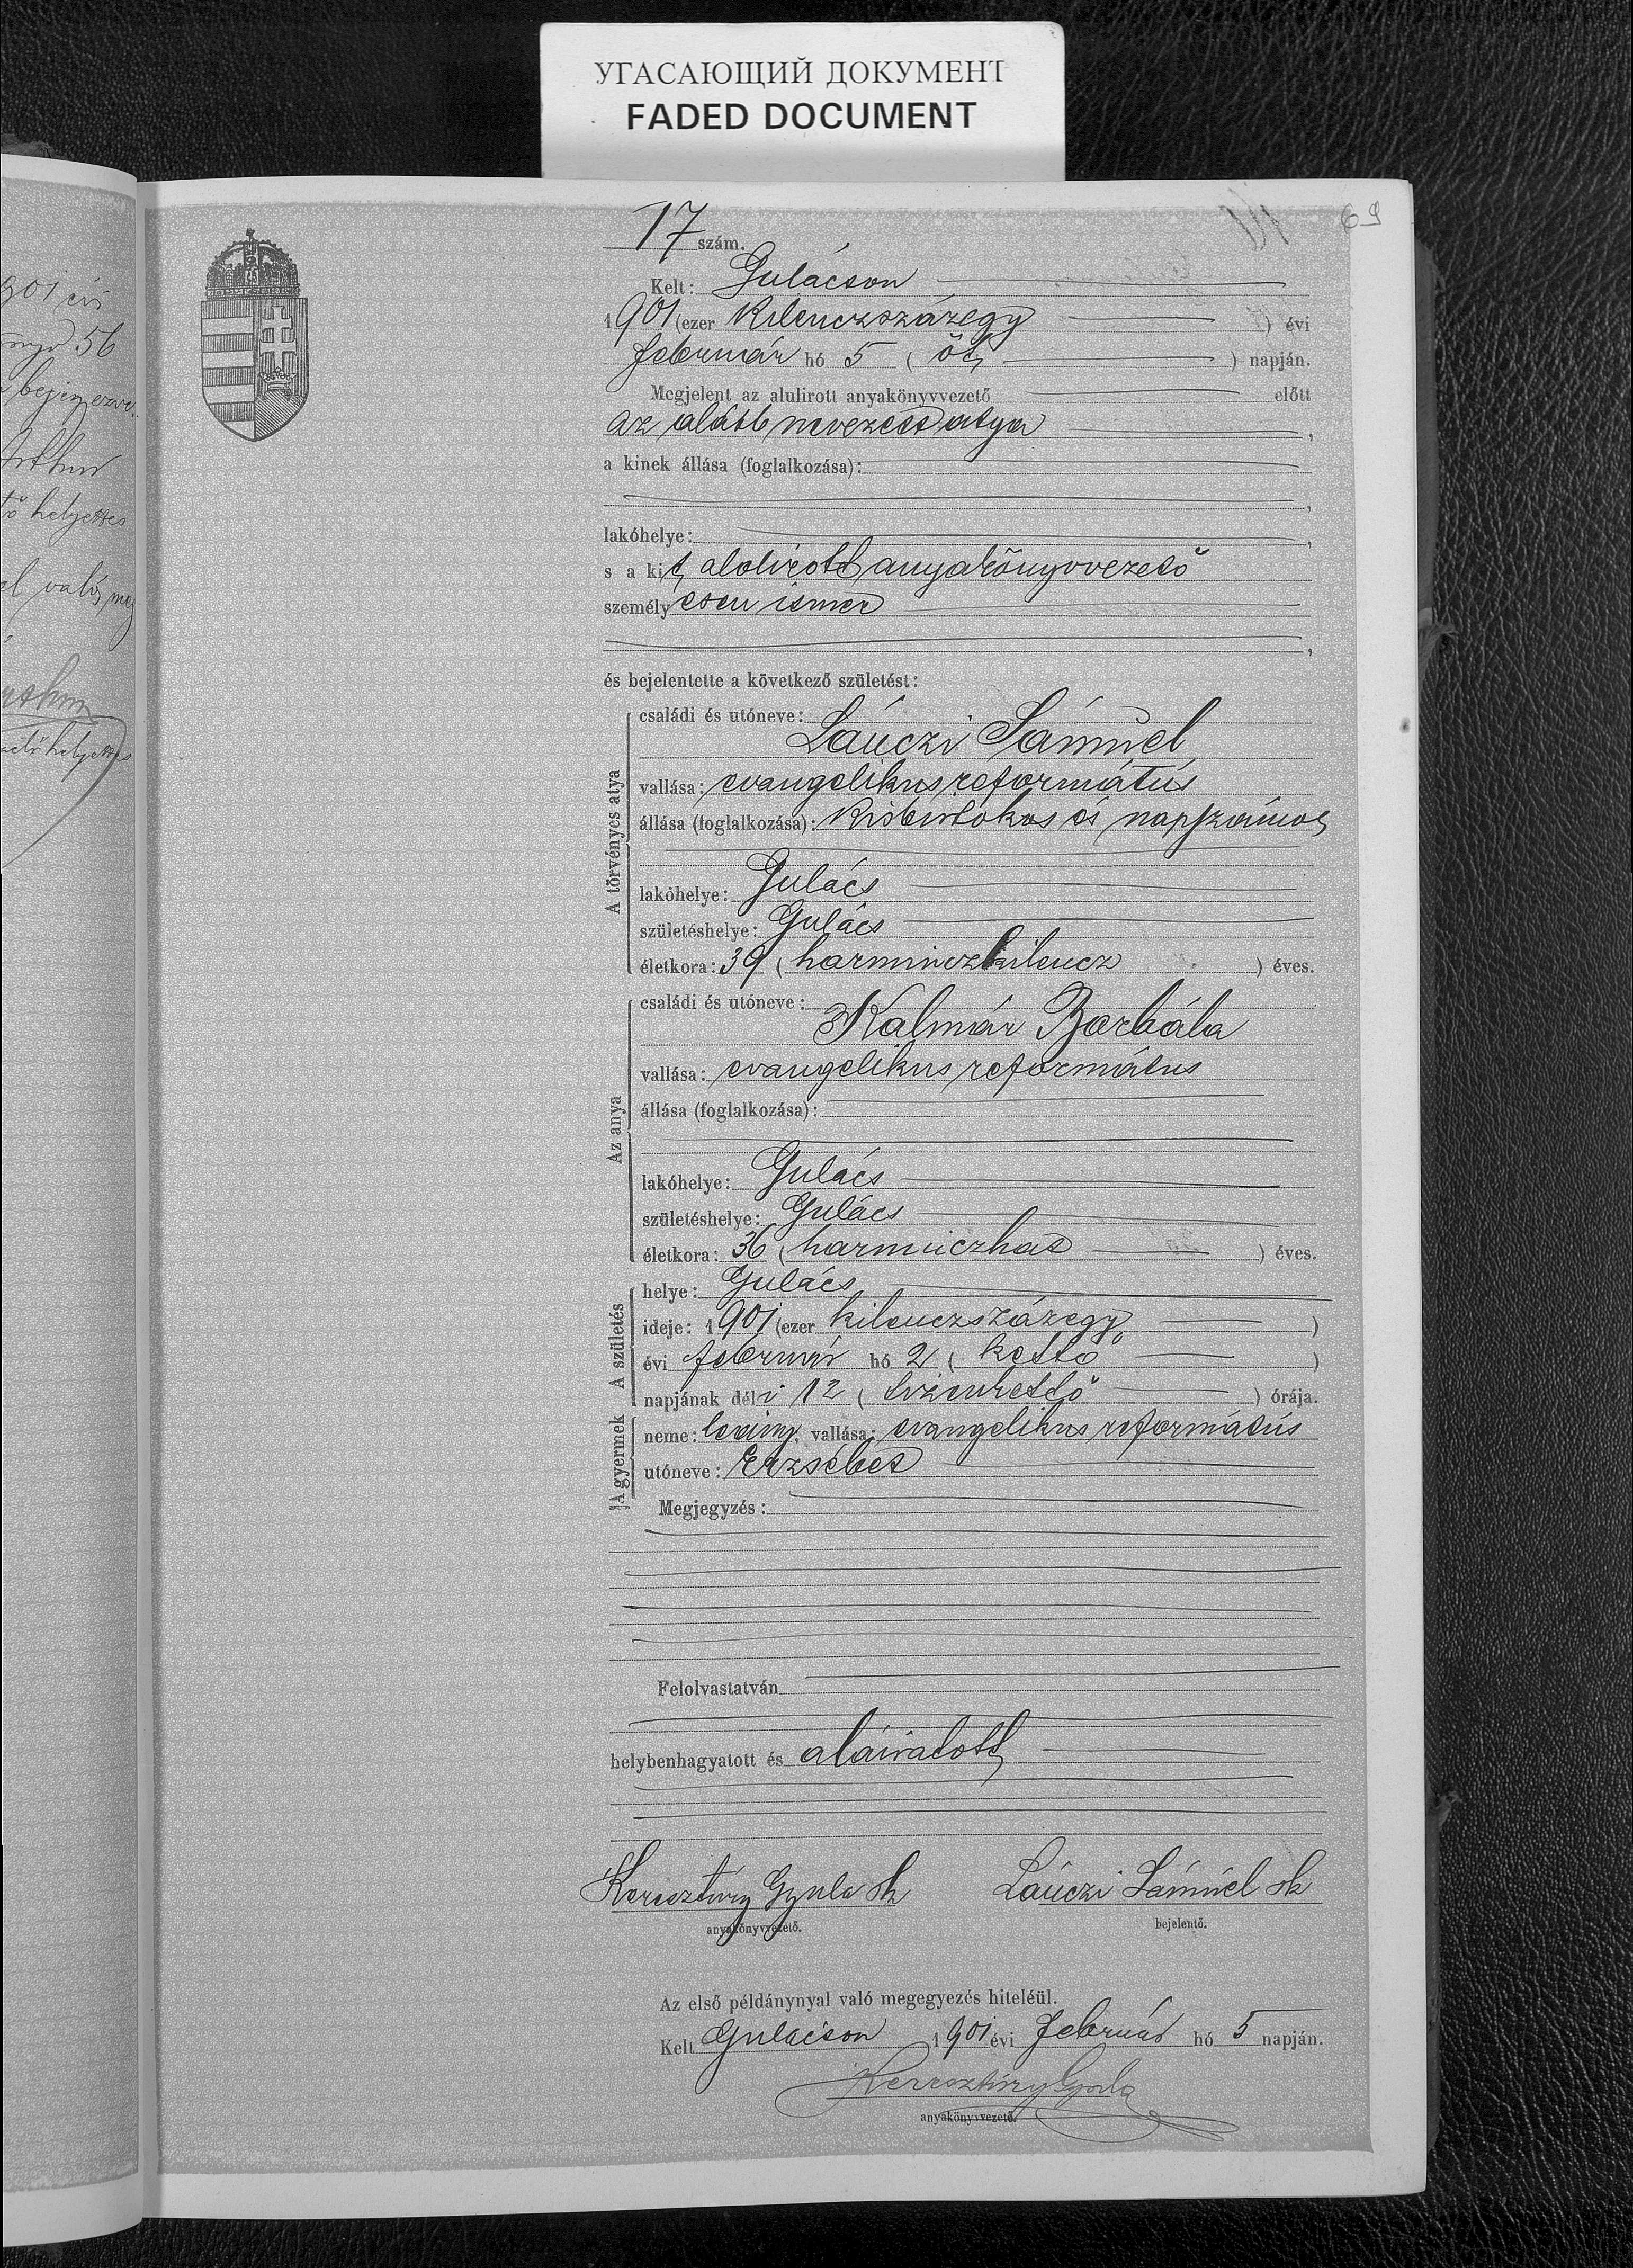 УГАСАЮЩИЙ ДОКУМЕНТ
FADED DOCUMENT
69
17 szám.
Kelt: Gulácson
1901 (ezer kilenczszázegy ) évi
február hó 5 ( öt ) napján.
Megjelent az alulirott anyakönyvvezető előtt
az alább nevezett atya ,
a kinek állása (foglalkozása):
,
lakóhelye: ,
s a kit alolirott anyakönyvvezető
személyesen ismer
,
és bejelentette a következő születést:
A törvényes atya
családi és utóneve:
Láuczi Sámuel
vallása: evangelikus református
állása (foglalkozása): kisbirtokos és napszámos
lakóhelye: Gulács
születéshelye: Gulács
életkora: 39 ( harminczkilencz ) éves.
Az anya
családi és utóneve:
Kalmár Borbála
vallása: evangelikus református
állása (foglalkozása):
lakóhelye: Gulács
születéshelye: Gulács
életkora: 36 ( harminczhat ) éves.
A születés
helye: Gulács
ideje: 1901 (ezer kilenczszázegy )
évi február hó 2 ( kettő )
napjának déli 12 ( tizenkettő ) órája.
A gyermek
neme: leány, vallása: evangelikus református
utóneve: Erzsébet
Megjegyzés:
Felolvastatván
helybenhagyatott és aláiratott
Keresztúry Gyula sk Láuczi Sámuel sk
anyakönyvvezető. bejelentő.
Az első példánynyal való megegyezés hiteléül.
Kelt Gulácson 1901 évi február hó 5 napján.
Keresztúry Gyula
anyakönyvvezető.
901 évi
56
bejegyezve.
Arthur
tő helyettes
el való meg
helyettes